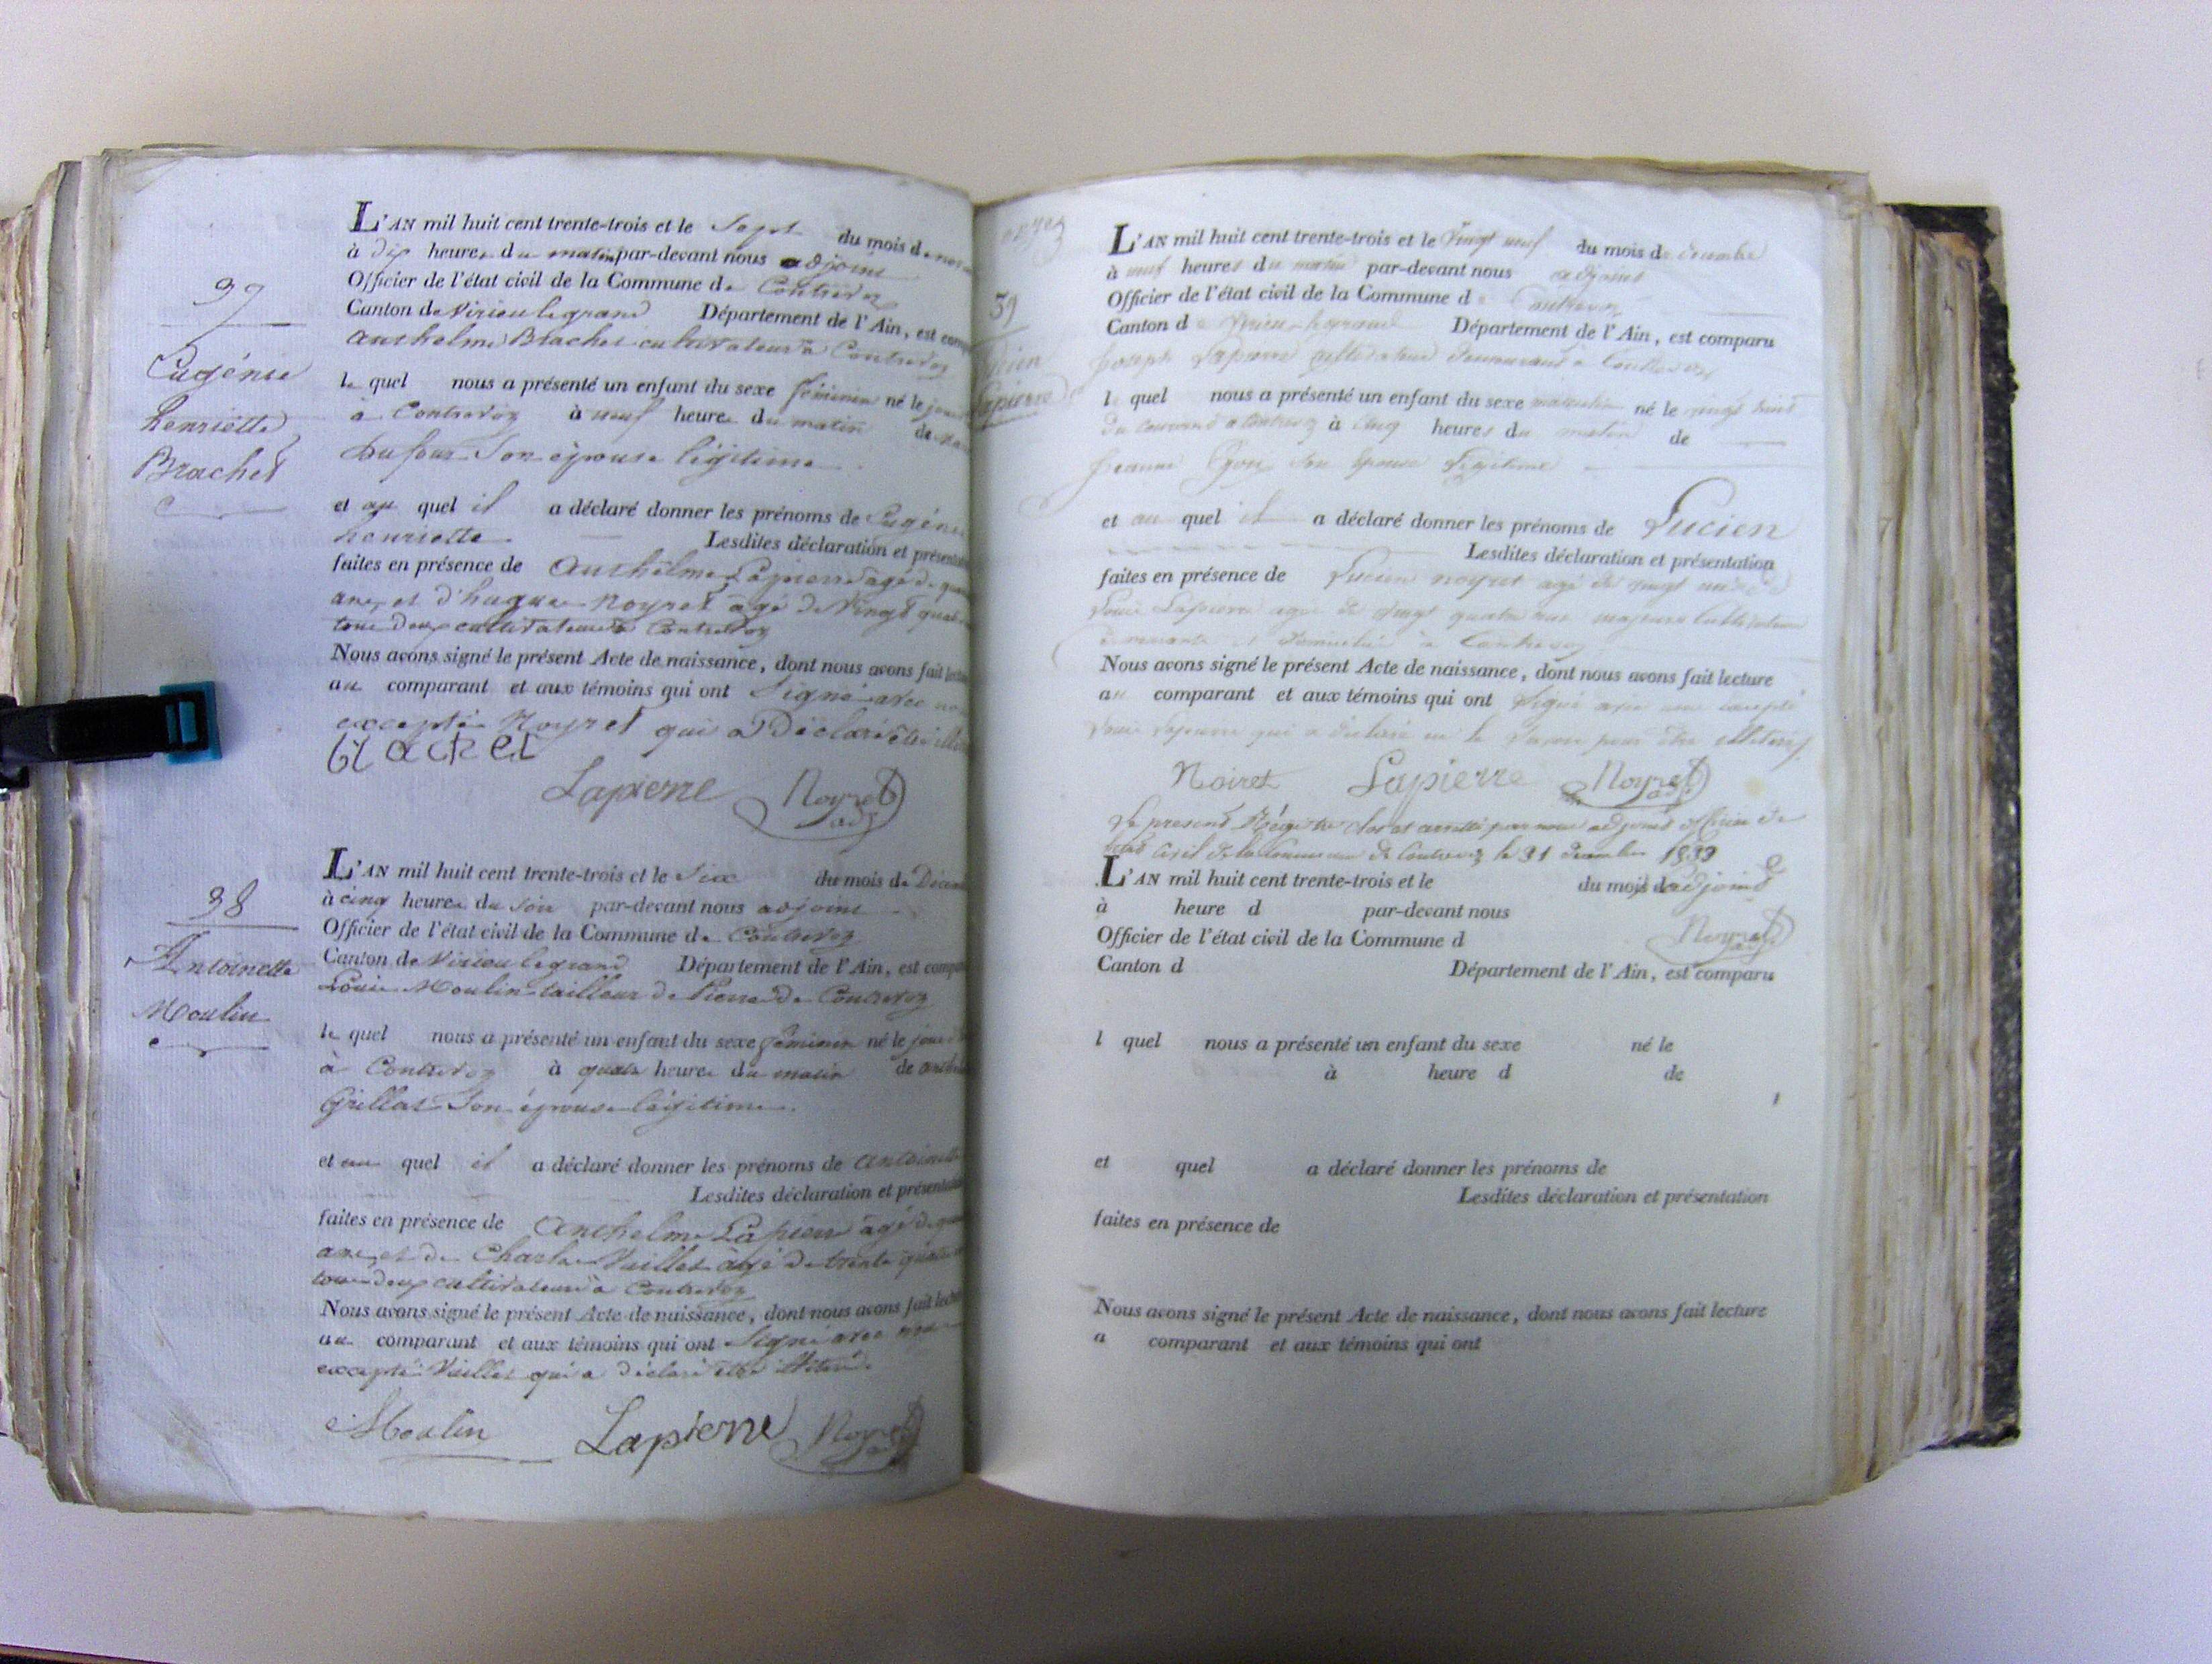 37
Eugénie
henriette
Brachet
L'AN mil huit cent trente-trois et le Sept du mois de
à dix heures du matin par-devant nous adjoint
Officier de l'état civil de la Commune de Contrevoz
Canton de Virieu legrand Département de l'Ain, est
anthelme Brachet cultivateur à Contrevoz
le quel nous a présenté un enfant du sexe féminin né le
à Contrevoz à neuf heures du matin de
Dufour Son épouse légitime
et au quel il a déclaré donner les prénoms de Eugénie
henriette Lesdites déclaration et
faites en présence de Anthelme Lapierre agé de
ans, et d'hugues Noyret agé de Vingt
tous deux cultivateurs à Contrevoz
Nous avons signé le présent Acte de naissance, dont nous avons fait
au comparant et aux témoins qui ont Signé avec
excepté Noyret qui a Déclaré être
Brachet
Lapierre Noyret adj
38
Antoinette
Moulin
L'AN mil huit cent trente-trois et le Six du mois de
à cinq heures du soir par-devant nous adjoint
Officier de l'état civil de la Commune de Contrevoz
Canton de Virieu legrand Département de l'Ain, est
Louis Moulin tailleur de Pierre de Contrevoz
le quel nous a présenté un enfant du sexe féminin né le
à Contrevoz à quatre heures du matin de
Grillat Son épouse légitime
et au quel il a déclaré donner les prénoms de antoinette
Lesdites déclaration et
faites en présence de Anthelme Lapierre agé de
ans, et de Charles Vuillet agé de trente
tous deux cultivateurs à Contrevoz
Nous avons signé le présent Acte de naissance, dont nous avons fait
au comparant et aux témoins qui ont Signé avec nous
excepté Vuillet qui a déclaré être
Moulin Lapierre Noyret adj
39
Lapierre
L'AN mil huit cent trente-trois et le Vingt neuf du mois de décembre
à neuf heures du matin par-devant nous adjoint
Officier de l'état civil de la Commune de Contrevoz
Canton de Virieu legrand Département de l'Ain, est comparu
Joseph Lapierre cultivateur demeurant à Contrevoz
le quel nous a présenté un enfant du sexe masculin né le vingt huit
du courant à Contrevoz à cinq heures du matin de
Jeanne son épouse légitime
et au quel il a déclaré donner les prénoms de Lucien
Lesdites déclaration et présentation
faites en présence de Lucien noyret agé de vingt
Louis Lapierre agé de vingt quatre ans majeurs cultivateurs
demeurants et domiciliés à Contrevoz
Nous avons signé le présent Acte de naissance, dont nous avons fait lecture
au comparant et aux témoins qui ont Signé avec nous excepté
Louis Lapierre qui a déclaré ne le savoir pour être
Noiret Lapierre Noyret adj
Le present Régistre clos et arretté par nous adjoint officier de
l'état Civil de la Commune de Contrevoz le 31 decembre 1833
L'AN mil huit cent trente-trois et le du mois d adjoint
à heure d par-devant nous
Officier de l'état civil de la Commune d Noyret adj
Canton d Département de l'Ain, est comparu
l quel nous a présenté un enfant du sexe né le
à heure d de
et quel a déclaré donner les prénoms de
Lesdites déclaration et présentation
faites en présence de
Nous avons signé le présent Acte de naissance, dont nous avons fait lecture
a comparant et aux témoins qui ont